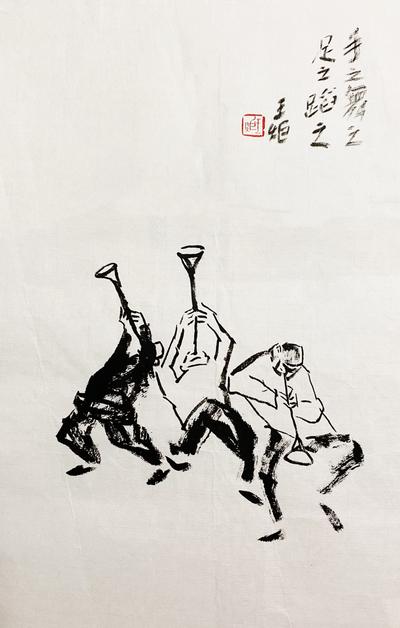 手之舞之
足之蹈之
王炬